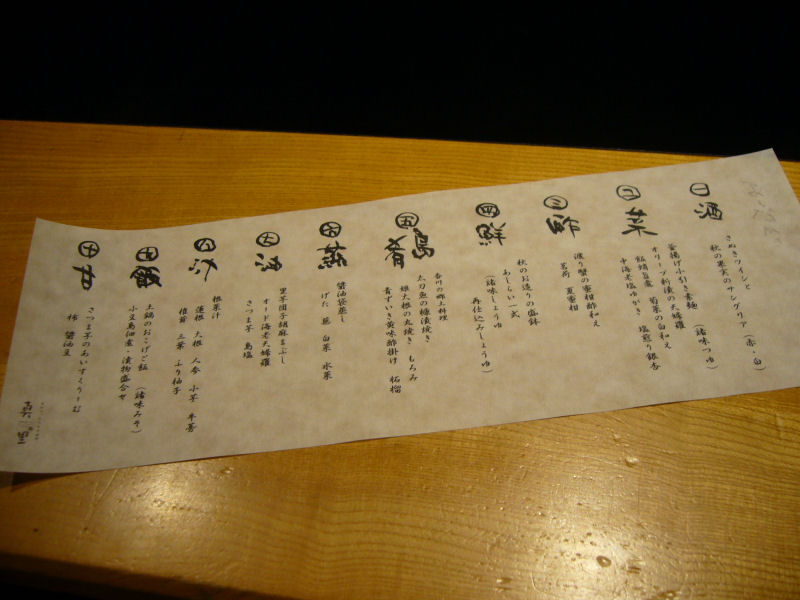 一 酒
さぬきワインと
秋の果実のサングリア（赤・白）
二 菜
釜揚げ小引き素麺 （諸味つゆ）
オリーブ新漬の天婦羅
飯蛸旨煮 菊菜の白和え
中海老塩ゆがき 塩煎り銀杏
三 酢
渡り蟹の蜜柑酢和え
茗荷 夏蜜柑
四 鮮
秋のお造りの盛鉢
あしらい一式
（諸味しょうゆ
再仕込みしょうゆ）
五 島肴
香川の郷土料理
太刀魚の糠漬焼き
雄大根の丸焼き・もろみ
青ずいき黄味酢掛け 柘榴
六 蒸
醤油袋蒸し
げた 葱 白菜 水菜
七 油
里芋団子胡麻まぶし
オード海老天婦羅
さつま芋 島塩
八 汁
根菜汁
蓮根 大根 人参 小芋 牛蒡
椎茸 三葉 ふり柚子
九 飯
土鍋のおこげご飯 （諸味みそ）
小豆島佃煮・漬物盛合せ
十 甘
さつま芋のあいすくりーむ
柿 醤油豆
真里